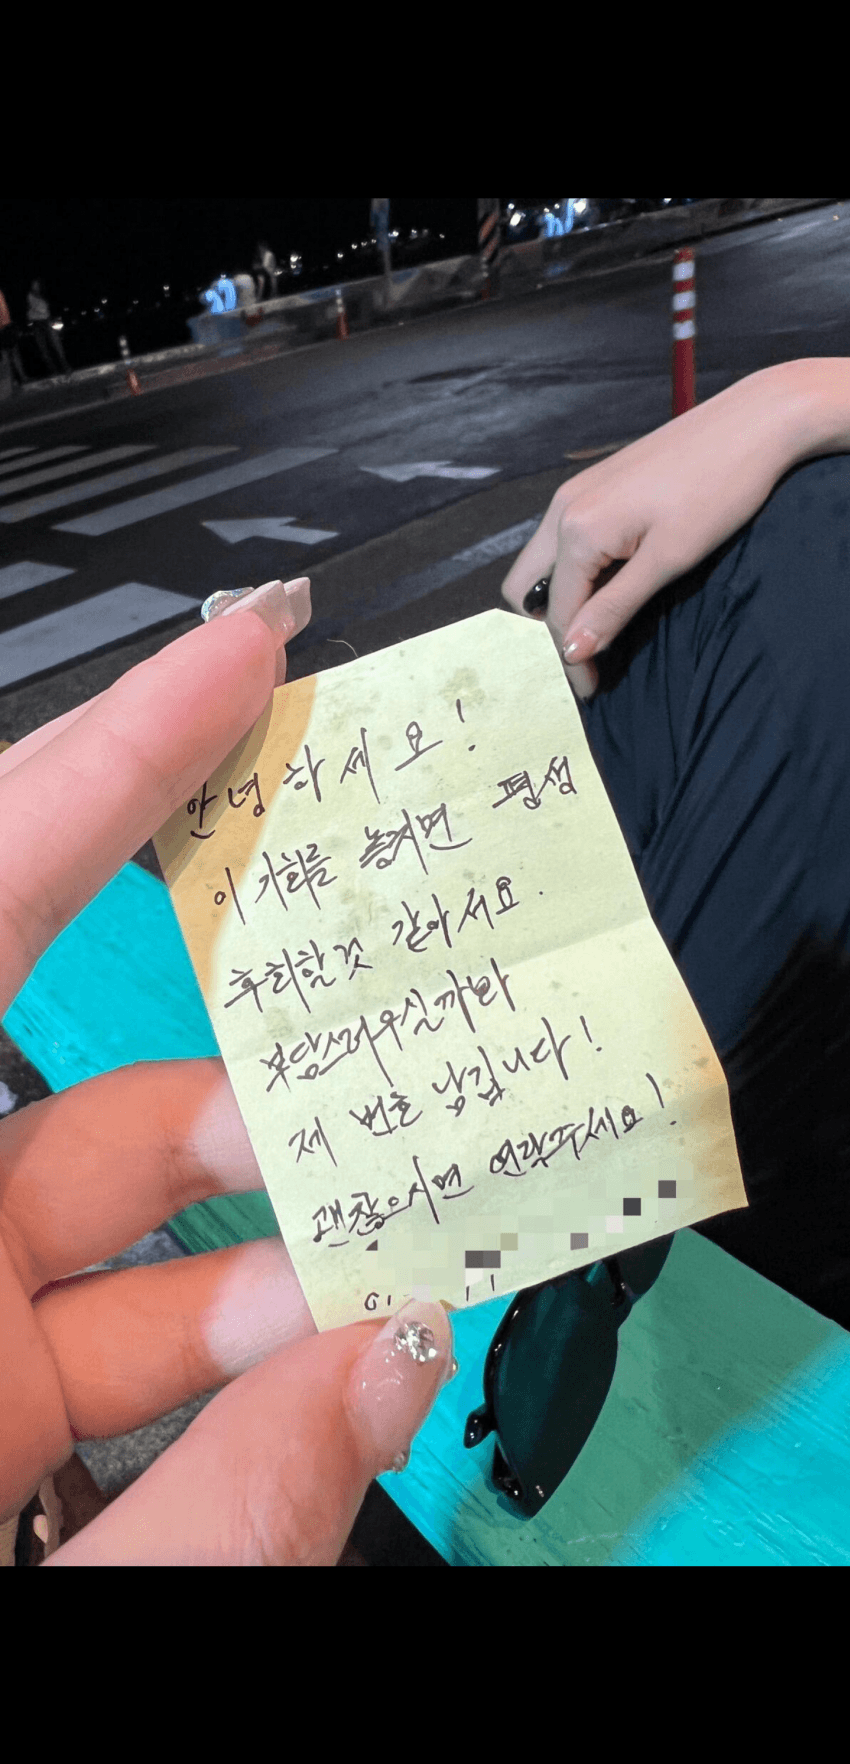 안녕하세요!
이 기회를 놓치면 평생
후회할것 같아서요.
부담스러우실까봐
제 번호 남깁니다!
괜찮으시면 연락주세요!